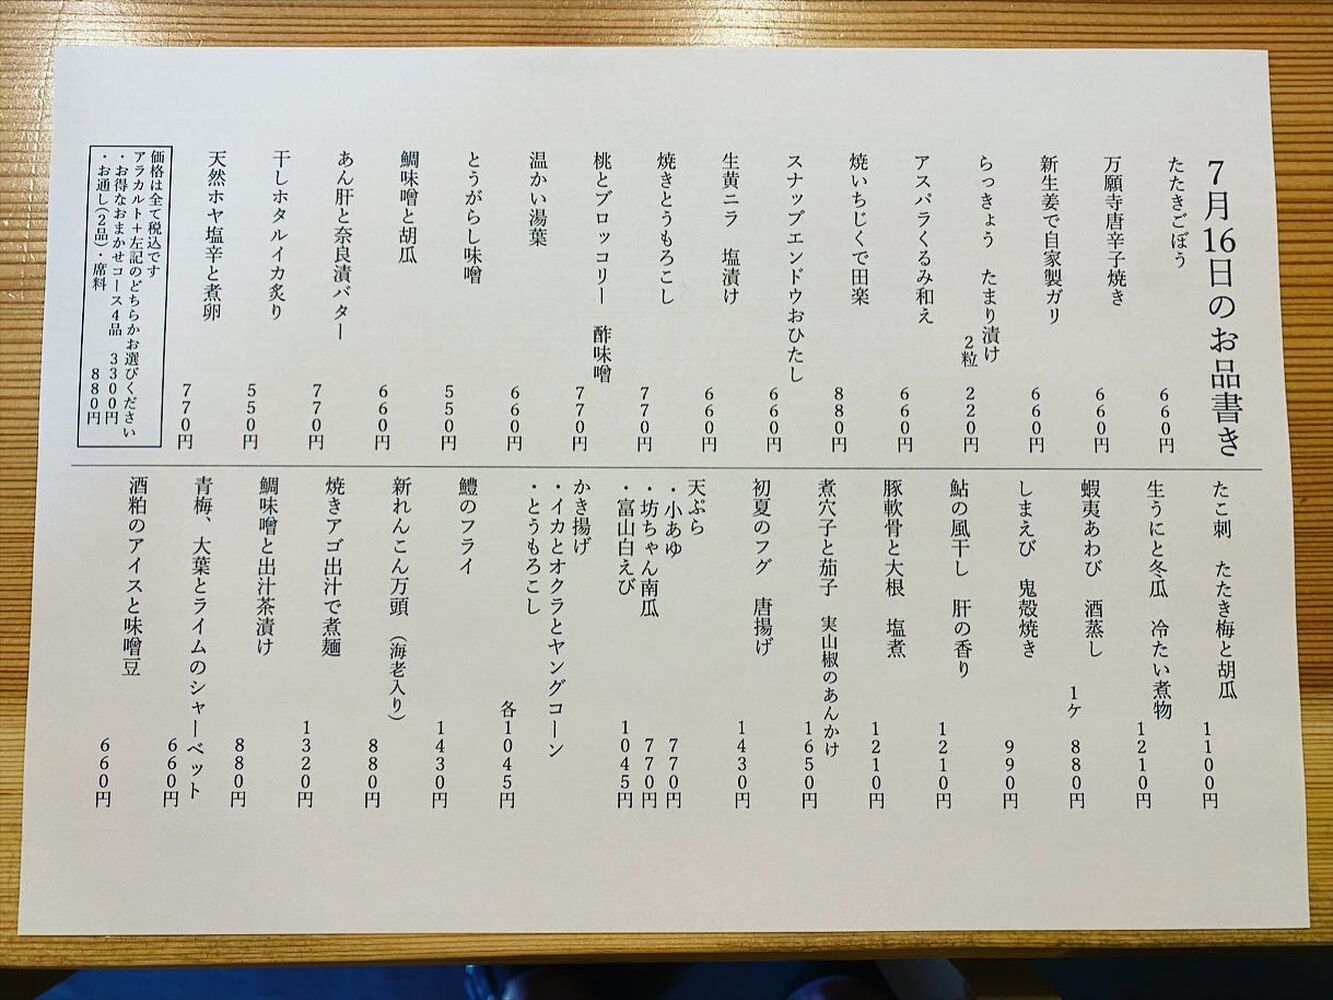 7月16日のお品書き
たたきごぼう
660円
万願寺唐辛子焼き
660円
新生姜で自家製ガリ
660円
らっきょう　たまり漬け
2粒　220円
アスパラくるみ和え
660円
焼いちじくで田楽
880円
スナップエンドウおひたし
660円
生黄ニラ　塩漬け
660円
焼きとうもろこし
770円
桃とブロッコリー　酢味噌
770円
温かい湯葉
660円
とうがらし味噌
550円
鯛味噌と胡瓜
660円
あん肝と奈良漬バター
770円
干しホタルイカ炙り
550円
天然ホヤ塩辛と煮卵
770円
価格は全て税込です
アラカルト＋左記のどちらかお選びください
・お得なおまかせコース4品　3300円
・お通し(2品)・席料　880円
たこ刺　たたき梅と胡瓜
1100円
生うにと冬瓜　冷たい煮物
1210円
蝦夷あわび　酒蒸し
1ケ　880円
しまえび　鬼殻焼き
990円
鮎の風干し　肝の香り
1210円
豚軟骨と大根　塩煮
1210円
煮穴子と茄子　実山椒のあんかけ
1650円
初夏のフグ　唐揚げ
1430円
天ぷら
・小あゆ　770円
・坊ちゃん南瓜　770円
・富山白えび　1045円
かき揚げ
・イカとオクラとヤングコーン
・とうもろこし
各1045円
鱧のフライ
1430円
新れんこん万頭（海老入り）
880円
焼きアゴ出汁で煮麺
1320円
鯛味噌と出汁茶漬け
880円
青梅、大葉とライムのシャーベット
660円
酒粕のアイスと味噌豆
660円